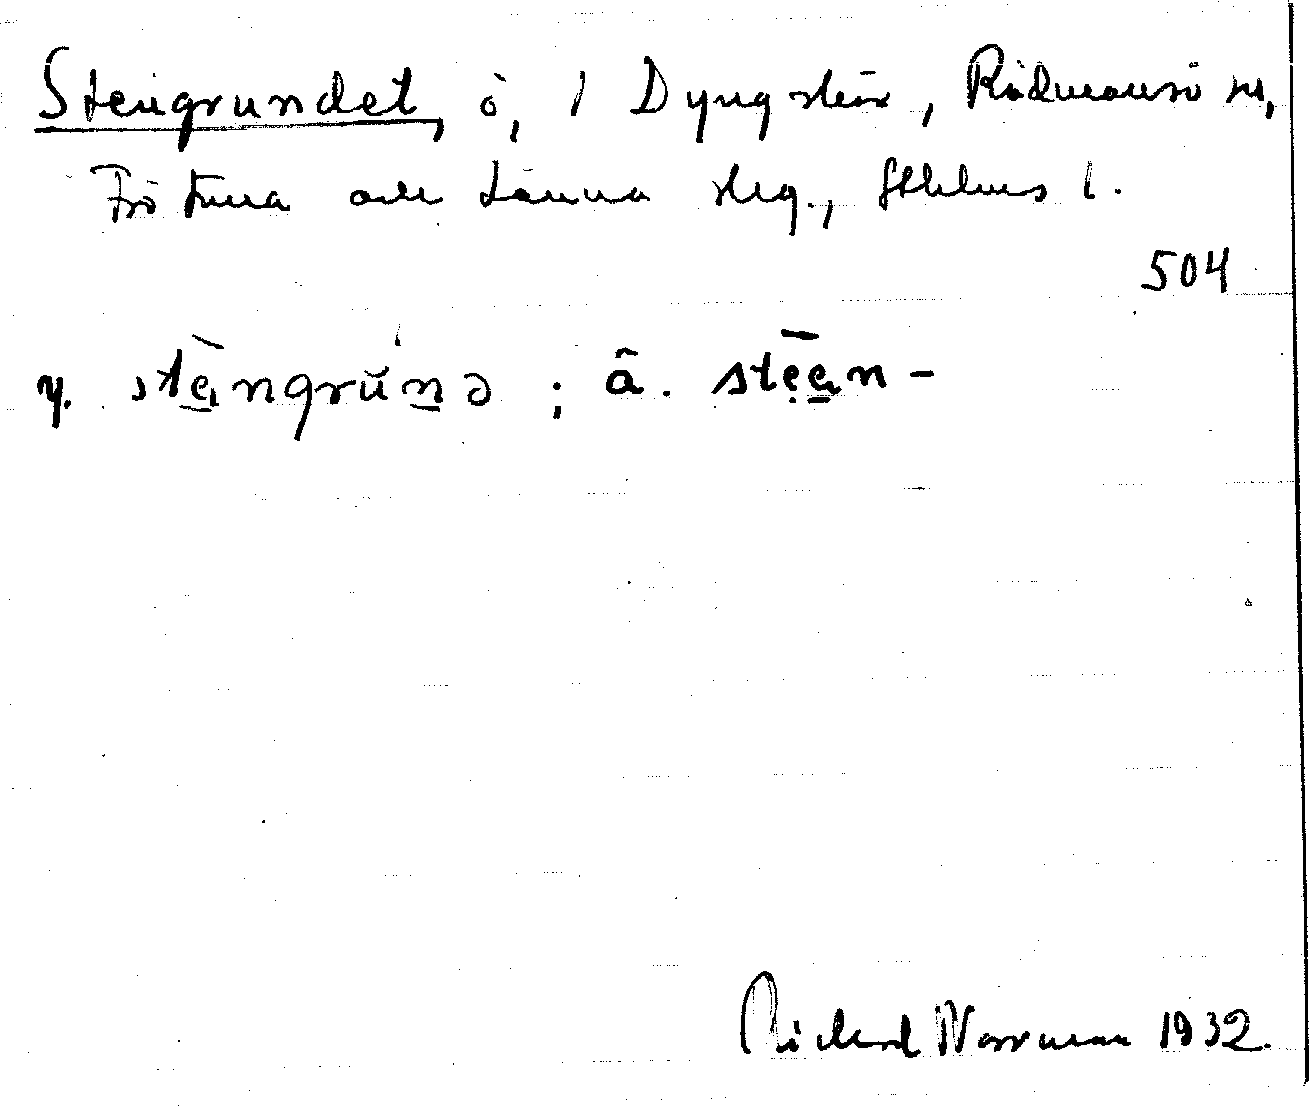 Stengrundet, ö, i Dyngskär, Rådmansö sn,
Frötuna och Länna skg., Sthlms l.
504
y. stèngrúnə ; â. stēen -
Rickard Norrman 1932.